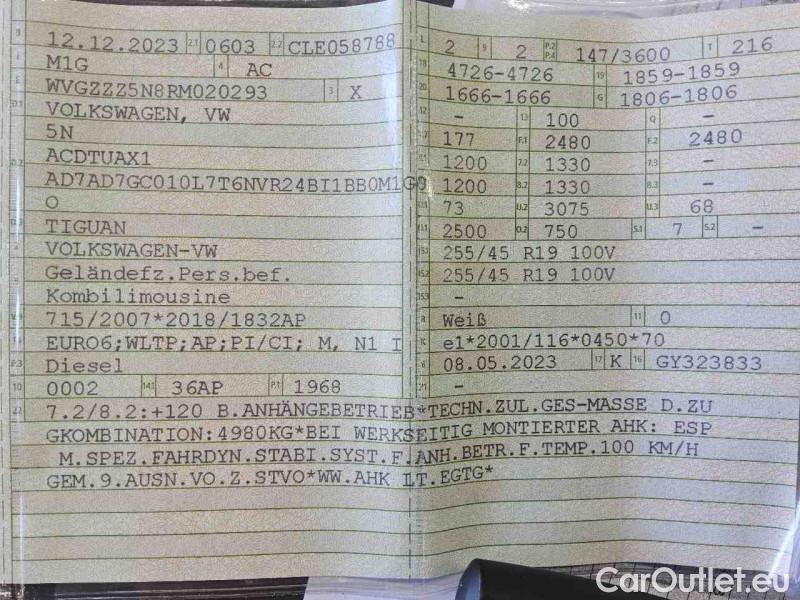 B 12.12.2023 2.1 0603 2.2 CLE058788
J M1G 4 AC
E WVGZZZ5N8RM020293 3 X
D.1 VOLKSWAGEN, VW
5N
ACDTUAX1
D.2 AD7AD7GC010L7T6NVR24BI1BB0M1G0
O
D.3 TIGUAN
VOLKSWAGEN-VW
Geländefz.Pers.bef.
Kombilimousine
V.9 715/2007*2018/1832AP
EURO6;WLTP;AP;PI/CI; M, N1 I
P.3 Diesel
10 0002 14.1 36AP P.1 1968
22 7.2/8.2:+120 B.ANHÄNGEBETRIEB*TECHN.ZUL.GES-MASSE D.ZU
GKOMBINATION:4980KG*BEI WERKSEITIG MONTIERTER AHK: ESP
M.SPEZ.FAHRDYN.STABI.SYST.F.ANH.BETR.F.TEMP.100 KM/H
GEM.9.AUSN.VO.Z.STVO*WW.AHK LT.EGTG*
L 2 9 2 P.2 P.4 147/3600 T 216
18 4726-4726 19 1859-1859
20 1666-1666 G 1806-1806
12 - 13 100 Q -
177 F.1 2480 F.2 2480
7.1 1200 7.2 1330 7.3 -
8.1 1200 8.2 1330 8.3 -
U.1 73 U.2 3075 U.3 68
O.1 2500 O.2 750 S.1 7 S.2 -
15.1 255/45 R19 100V
15.2 255/45 R19 100V
15.3 -
R Weiß 11 0
K e1*2001/116*0450*70
6 08.05.2023 17 K 16 GY323833
21 -
CarOutlet.eu